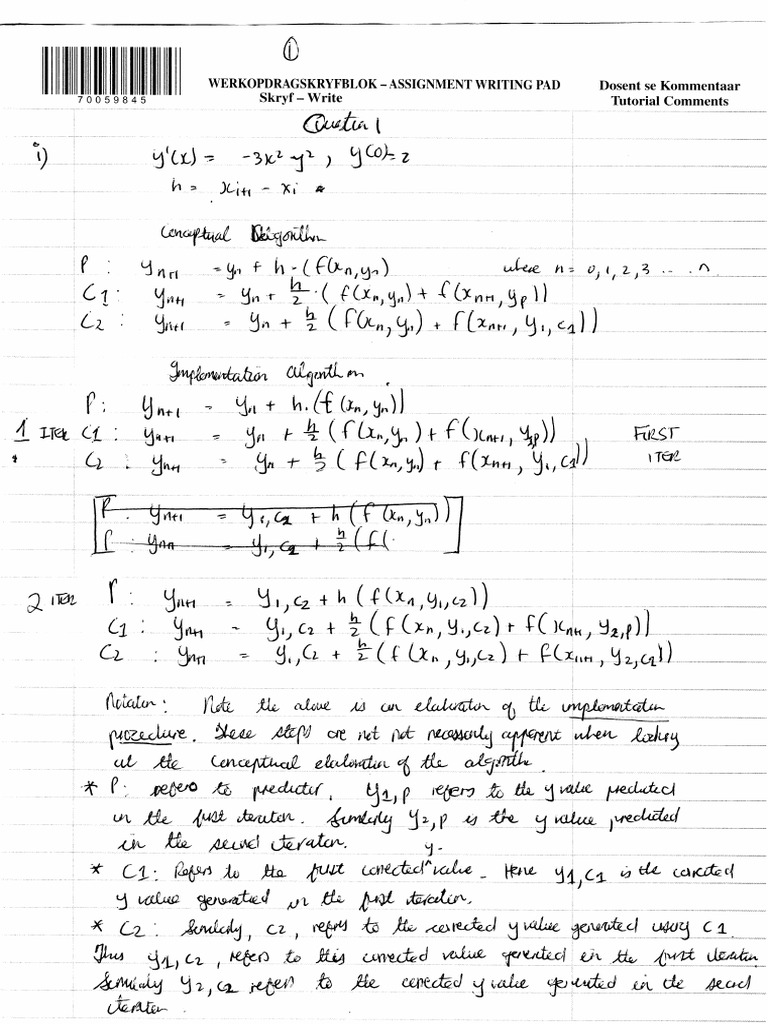 ①
70059845
WERKOPDRAGSKRYFBLOK – ASSIGNMENT WRITING PAD
Skryf – Write
Dosent se Kommentaar
Tutorial Comments
Question 1
i) y'(x) = -3x² - y² , y(0) = 2
h = x_{i+1} - x_i
Conceptual Algorithm
P : y_{n+1} = y_n + h · (f(x_n, y_n) where n = 0, 1, 2, 3 ... n
C1 : y_{n+1} = y_n + h/2 · (f(x_n, y_n) + f(x_{n+1}, y_p))
C2 : y_{n+1} = y_n + h/2 (f(x_n, y_n) + f(x_{n+1}, y_{1,C1}))
Implementation Algorithm
P : y_{n+1} = y_n + h · (f(x_n, y_n))
1 ITER C1 : y_{n+1} = y_n + h/2 (f(x_n, y_n) + f(x_{n+1}, y_{1,p})) FIRST
* C2 : y_{n+1} = y_n + h/2 (f(x_n, y_n) + f(x_{n+1}, y_{1,C1})) ITER
P : y_{n+1} = y_{1,C2} + h (f(x_n, y_n))
P : y_{nn} = y_{1,C2} + h/2 (f(
2 ITER P : y_{n+1} = y_{1,C2} + h (f(x_n, y_{1,C2}))
C1 : y_{n+1} = y_{1,C2} + h/2 (f(x_n, y_{1,C2}) + f(x_{n+1}, y_{2,p}))
C2 : y_{n+1} = y_{1,C2} + h/2 (f(x_n, y_{1,C2}) + f(x_{n+1}, y_{2,C1}))
Notation : Note the above is an elaboration of the implementation
procedure. These steps are not not necessarily apparent when looking
at the conceptual elaboration of the algorithm.
* P : refers to predictor. y1,p refers to the y value predicted
in the first iteration. Similarly y2,p is the y value predicted
in the second iteration.
y-
* C1 : Refers to the first corrected ^ value. Hence y1,C1 is the corrected
y value generated in the first iteration.
* C2 : Similarly, C2, refers to the corrected y value generated using C1.
Thus y1,C2, refers to this corrected value generated in the first iteration.
Similarly y2,C2 refers to the corrected y value generated in the second
iteration.